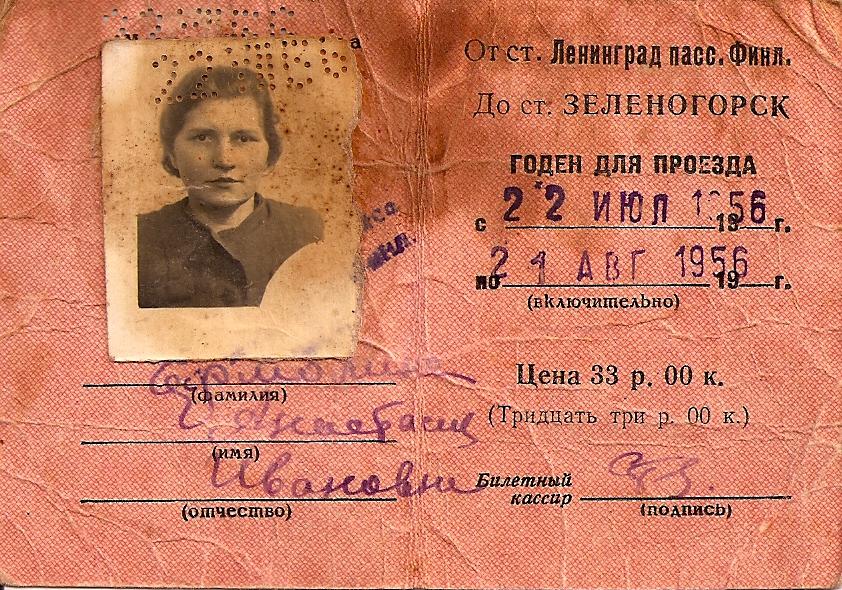 (фамилия)
Анастасия
(имя)
Ивановна
(отчество)
От ст. Ленинград пасс. Финл.
До ст. ЗЕЛЕНОГОРСК
ГОДЕН ДЛЯ ПРОЕЗДА
с 22 ИЮЛ 1956 19 г.
по 21 АВГ 1956 19 г.
(включительно)
Цена 33 р. 00 к.
(Тридцать три р. 00 к.)
Билетный
кассир
(подпись)